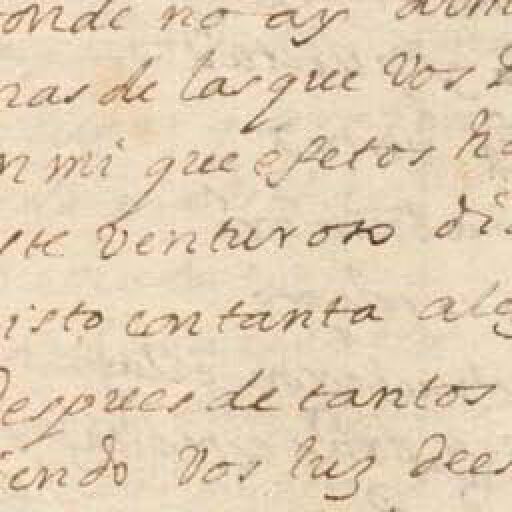 onde no ay
nas de las que Vos
n mi que efetos ha
ste venturoso di
isto con tanta ale
despues de tantos
iendo Vos luz dees